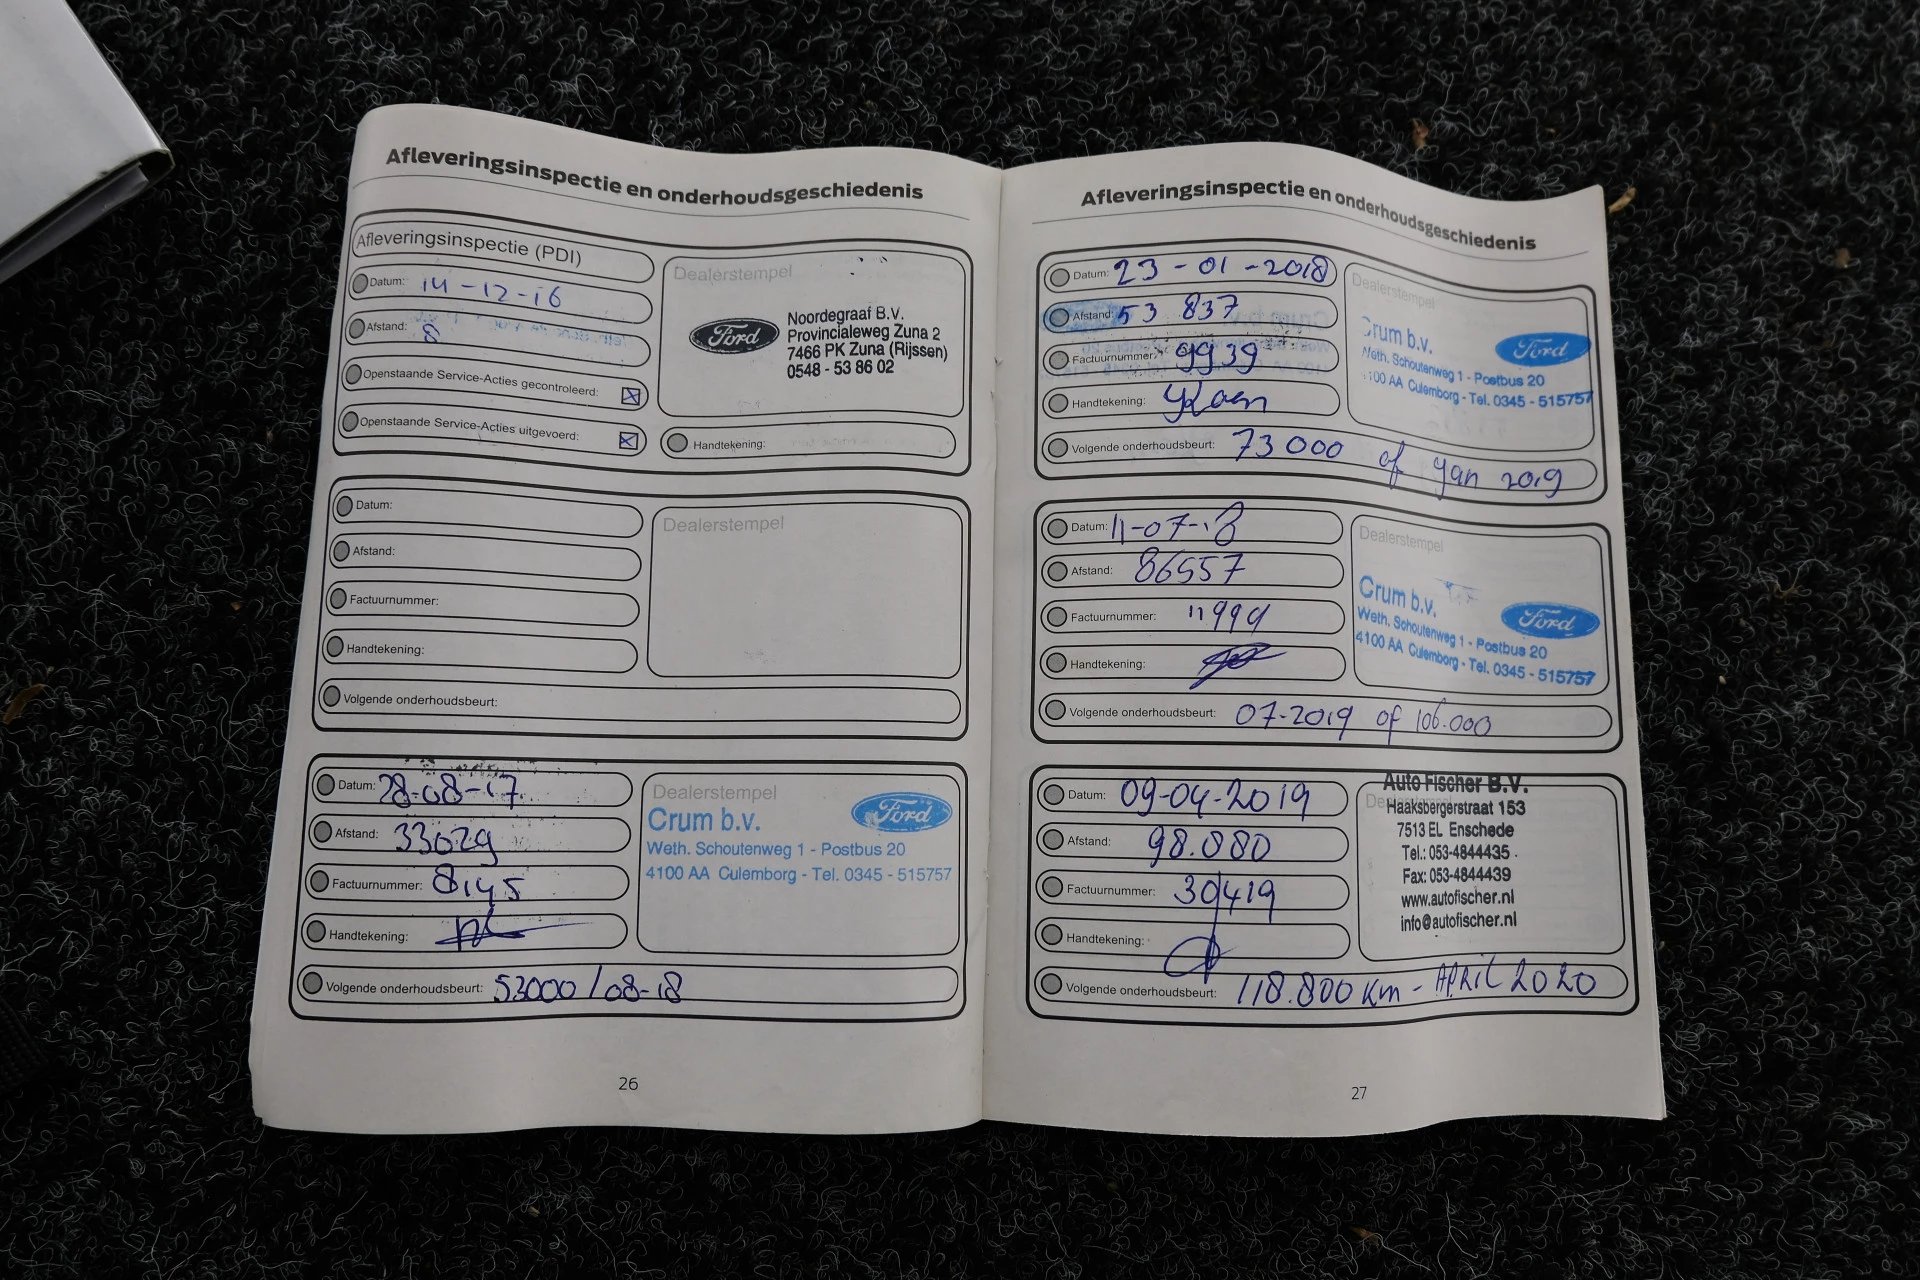 Afleveringsinspectie en onderhoudsgeschiedenis
Afleveringsinspectie (PDI)
Datum: 14-12-16
Afstand: 8
Openstaande Service-Acties gecontroleerd:
Openstaande Service-Acties uitgevoerd:
Dealerstempel
Ford
Noordegraaf B.V.
Provincialeweg Zuna 2
7466 PK Zuna (Rijssen)
0548 - 53 86 02
Handtekening:
Datum:
Afstand:
Factuurnummer:
Handtekening:
Volgende onderhoudsbeurt:
Dealerstempel
Datum: 28-08-17
Afstand: 33029
Factuurnummer: 8145
Handtekening:
Volgende onderhoudsbeurt: 53000 / 08-18
Dealerstempel
Crum b.v.
Ford
Weth. Schoutenweg 1 - Postbus 20
4100 AA Culemborg - Tel. 0345 - 515757
26
Afleveringsinspectie en onderhoudsgeschiedenis
Datum: 23-01-2018
Afstand: 53 837
Factuurnummer: 9939
Handtekening:
Volgende onderhoudsbeurt: 73 000 of jan 2019
Dealerstempel
Crum b.v.
Ford
Weth. Schoutenweg 1 - Postbus 20
4100 AA Culemborg - Tel. 0345 - 515757
Datum: 11-07-18
Afstand: 86557
Factuurnummer: 11999
Handtekening:
Volgende onderhoudsbeurt: 07-2019 of 106.000
Dealerstempel
Crum b.v.
Ford
Weth. Schoutenweg 1 - Postbus 20
4100 AA Culemborg - Tel. 0345 - 515757
Datum: 09-04-2019
Afstand: 98.080
Factuurnummer: 30419
Handtekening:
Volgende onderhoudsbeurt: 118.800 km - APRIL 2020
Auto Fischer B.V.
Haaksbergerstraat 153
7513 EL Enschede
Tel.: 053-4844435
Fax: 053-4844439
www.autofischer.nl
info@autofischer.nl
27